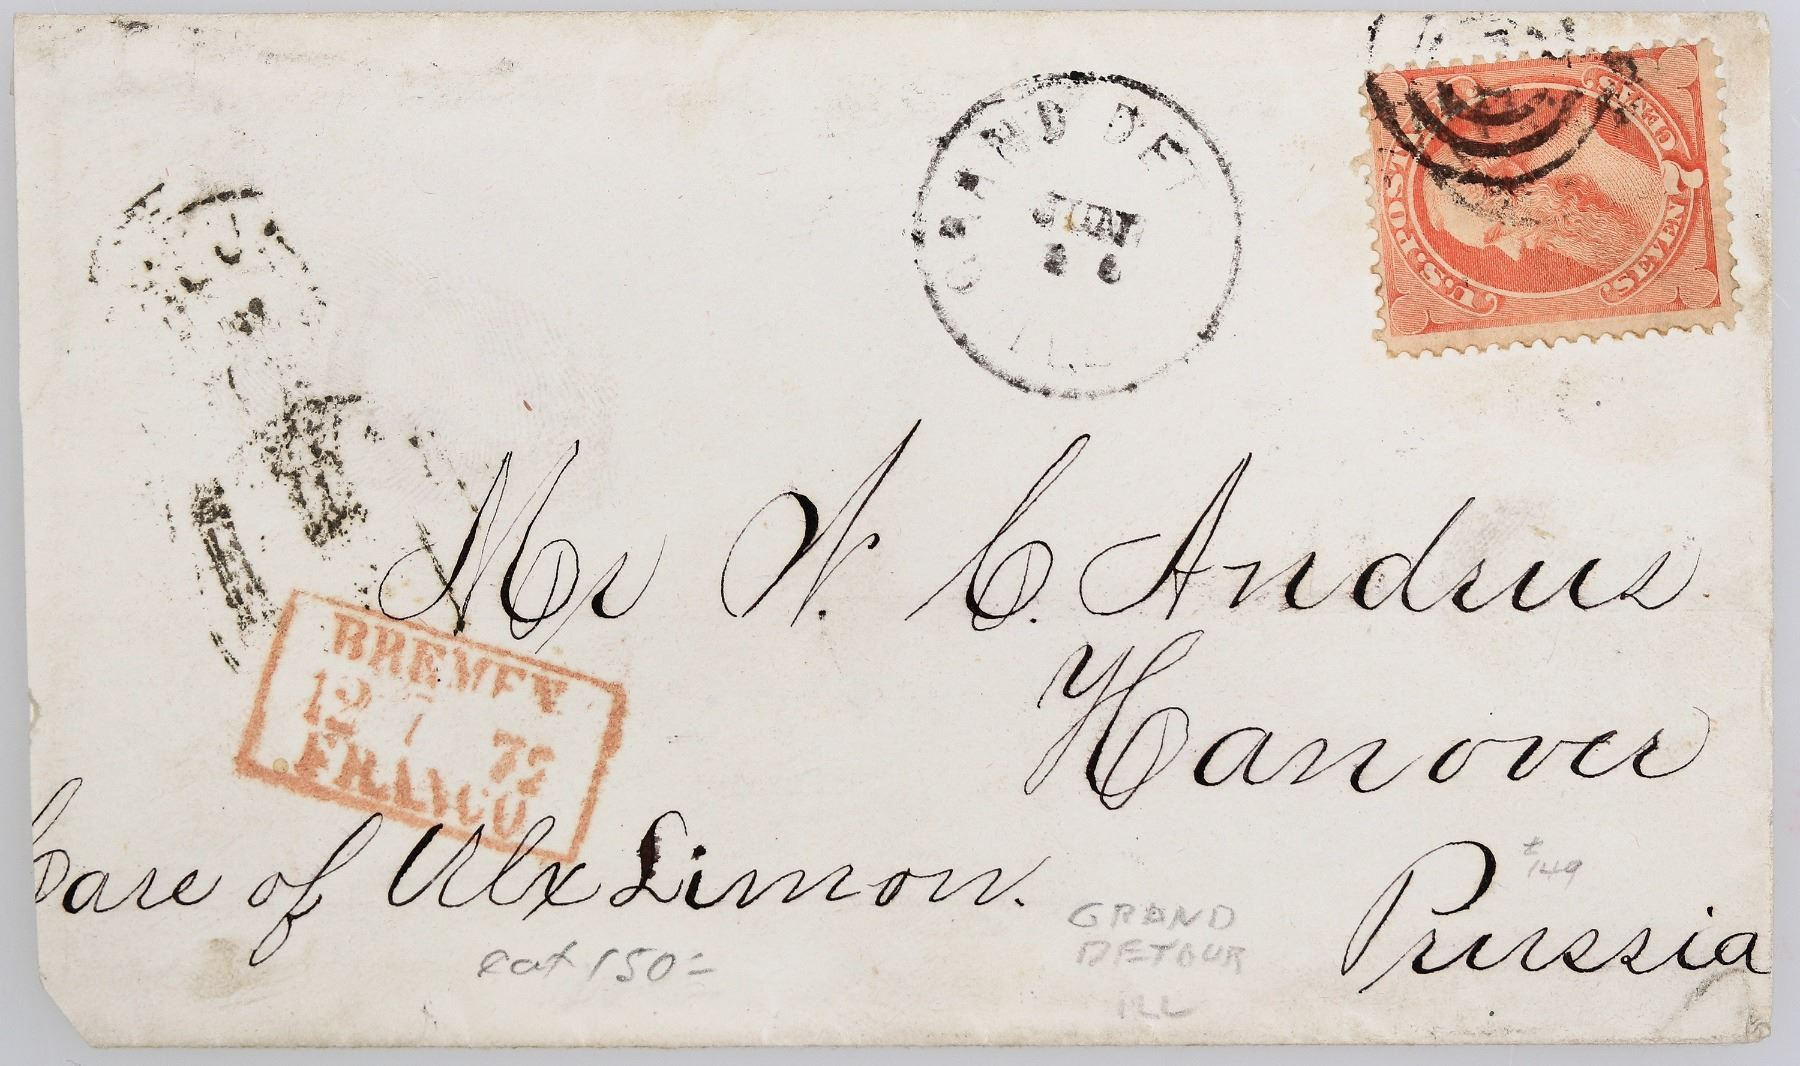 GRAND DET
JUN
26
ILL
U.S. POST
SEVEN 7 CENTS
Mr W. C. Andrus
Hanover
Prussia
BREMEN
12 7 72
FRANCO
Care of Alx Limon.
cat 150=
GRAND
DETOUR
ILL
149